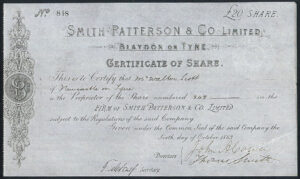 No. 848 £20 SHARE.
SMITH PATTERSON & CO. LIMITED,
BLAYDON ON TYNE.
CERTIFICATE OF SHARE.
This is to Certify that Mr Walter Scott
of Newcastle on Tyne
is the Proprietor of the Share numbered in the
FIRM OF SMITH PATTERSON & CO. LIMITED
subject to the Regulations of the said Company.
Given under the Common Seal of the said Company the
day of October 1883
Directors
Secretary